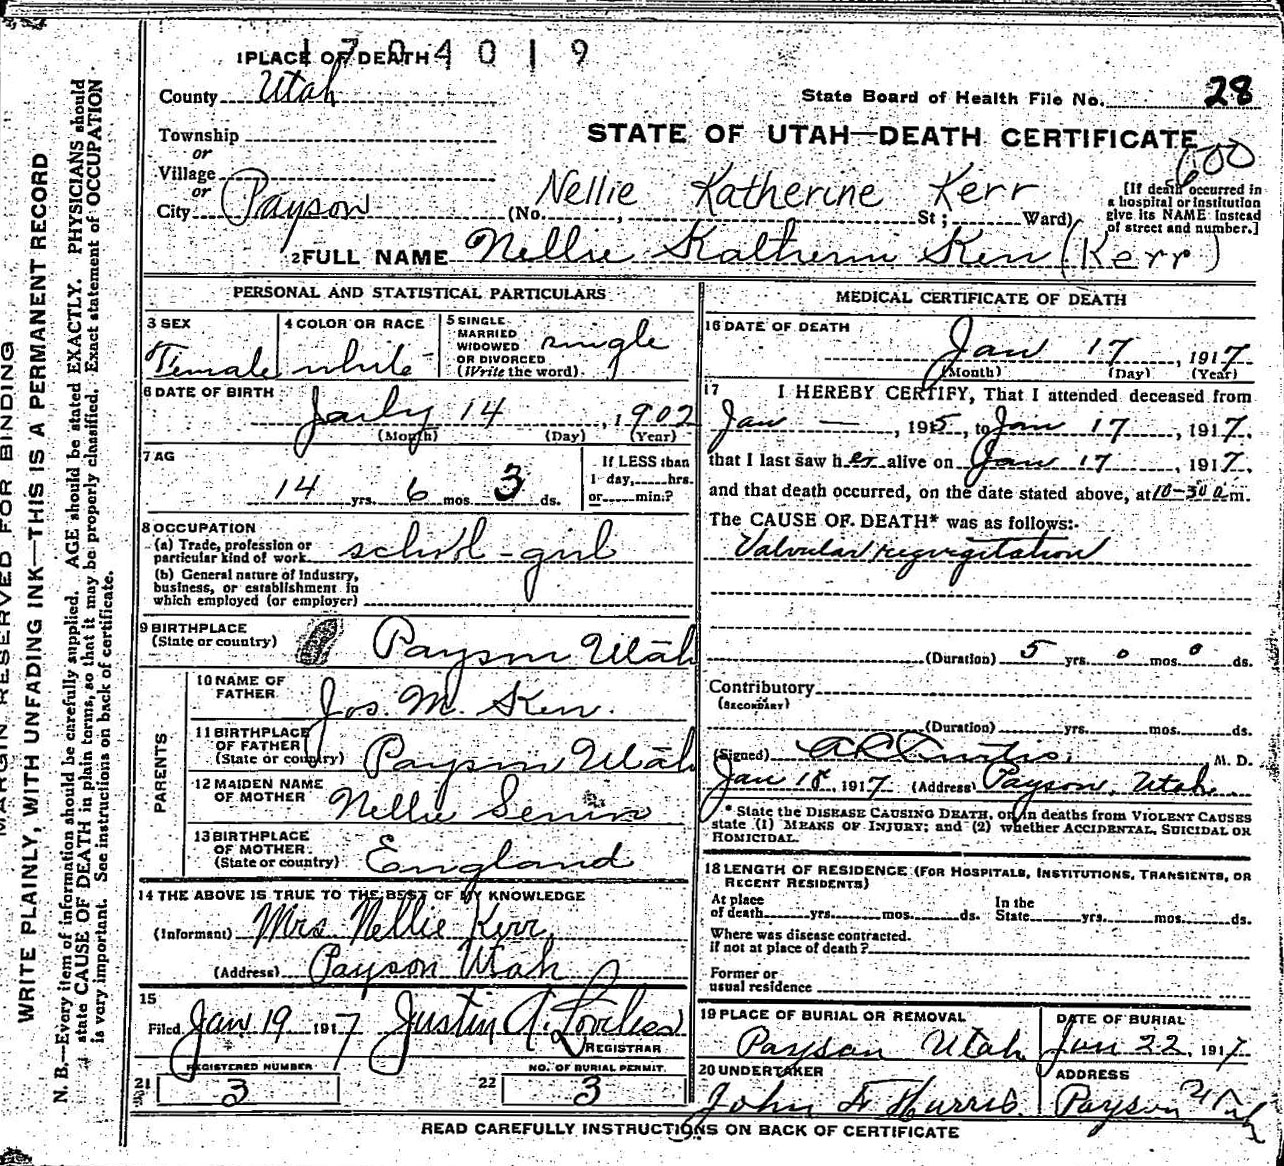 1704019
1 PLACE OF DEATH
County Utah
State Board of Health File No. 28
Township
or
STATE OF UTAH—DEATH CERTIFICATE
600
Village
or
City Payson
Nellie Katherine Kerr
(No. , St; Ward)
[If death occurred in
a hospital or institution
give its NAME instead
of street and number.]
2 FULL NAME Nellie Katherin Kerr (Kerr)
PERSONAL AND STATISTICAL PARTICULARS
3 SEX
Female
4 COLOR OR RACE
white
5 SINGLE
MARRIED
WIDOWED
OR DIVORCED
(Write the word)
single
6 DATE OF BIRTH
14, 1902
(Month) (Day) (Year)
7 AG
14 yrs. 6 mos. 3 ds.
If LESS than
1 day, hrs.
or min.?
8 OCCUPATION
(a) Trade, profession or
particular kind of work school-girl
(b) General nature of industry,
business, or establishment in
which employed (or employer)
9 BIRTHPLACE
(State or country) Payson Utah
PARENTS
10 NAME OF
FATHER Jos. M. Kerr.
11 BIRTHPLACE
OF FATHER
(State or country) Payson Utah
12 MAIDEN NAME
OF MOTHER Nellie
13 BIRTHPLACE
OF MOTHER
(State or country) England
14 THE ABOVE IS TRUE TO THE BEST OF MY KNOWLEDGE
(Informant) Mrs Nellie Kerr,
(Address) Payson Utah
15
Filed Jan 19 1917 Justin A. Loveless
REGISTRAR
REGISTERED NUMBER
21 3
NO. OF BURIAL PERMIT.
22 3
MEDICAL CERTIFICATE OF DEATH
16 DATE OF DEATH
Jan 17, 1917
(Month) (Day) (Year)
17 I HEREBY CERTIFY, That I attended deceased from
Jan —, 1915, to Jan 17, 1917,
that I last saw her alive on Jan 17, 1917,
and that death occurred, on the date stated above, at 10-30 a m.
The CAUSE OF DEATH* was as follows:
Valvular regurgitation
(Duration) 5 yrs. 0 mos. 0 ds.
Contributory
(SECONDARY)
(Duration) yrs. mos. ds.
(Signed) Curtis, M. D.
Jan 18, 1917 (Address) Payson, Utah
* State the DISEASE CAUSING DEATH, or in deaths from VIOLENT CAUSES
state (1) MEANS OF INJURY; and (2) whether ACCIDENTAL, SUICIDAL OR
HOMICIDAL.
18 LENGTH OF RESIDENCE (FOR HOSPITALS, INSTITUTIONS, TRANSIENTS, OR
RECENT RESIDENTS)
At place
of death yrs. mos. ds.
In the
State yrs. mos. ds.
Where was disease contracted.
if not at place of death?
Former or
usual residence
19 PLACE OF BURIAL OR REMOVAL
Payson Utah
DATE OF BURIAL
Jan 22, 1917
20 UNDERTAKER
John F Harris
ADDRESS
Payson Utah
READ CAREFULLY INSTRUCTIONS ON BACK OF CERTIFICATE
MARGIN RESERVED FOR BINDING
WRITE PLAINLY, WITH UNFADING INK—THIS IS A PERMANENT RECORD
N. B.—Every item of information should be carefully supplied. AGE should be stated EXACTLY. PHYSICIANS should
state CAUSE OF DEATH in plain terms, so that it may be properly classified. Exact statement of OCCUPATION
is very important. See instructions on back of certificate.